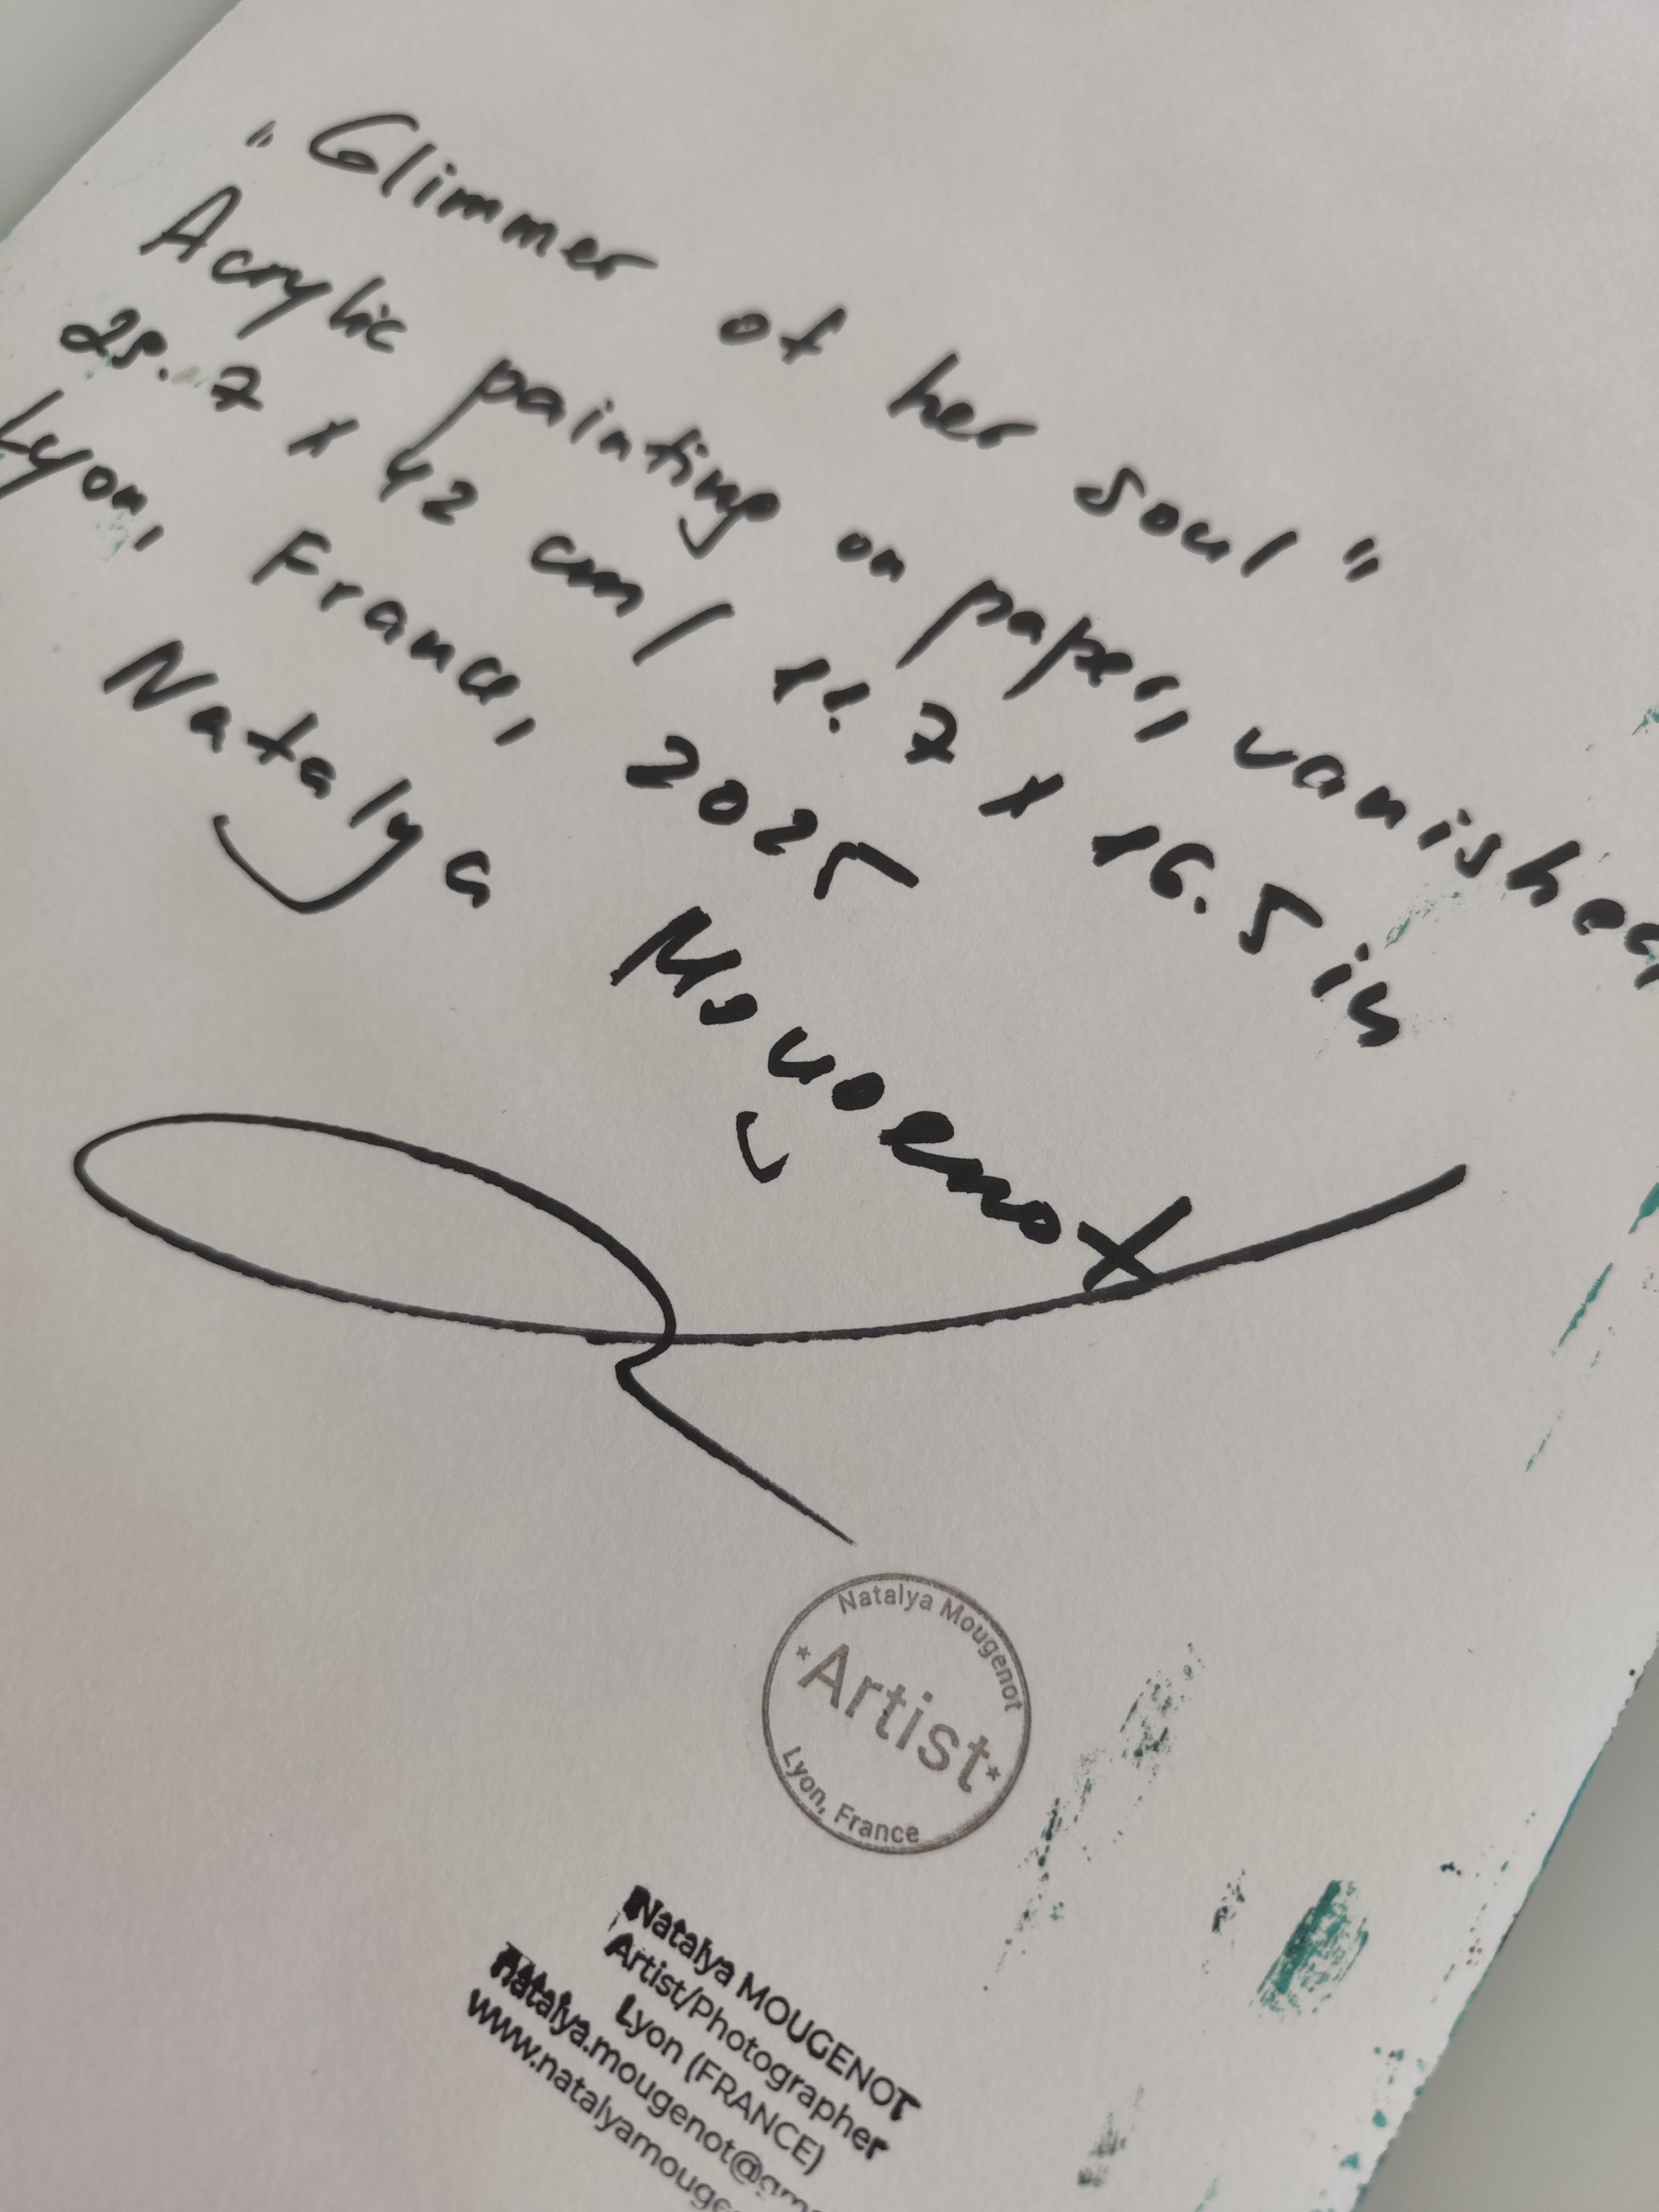 "Glimmer of her soul"
Acrylic painting on paper, vanished
29.7 x 42 cm / 11.7 x 16.5 in
Lyon, France, 2025
Natalya Mougenot
Natalya Mougenot
*Artist*
Lyon, France
Natalya MOUGENOT
Artist/Photographer
Lyon (FRANCE)
natalya.mougenot@gm
www.natalyamouge